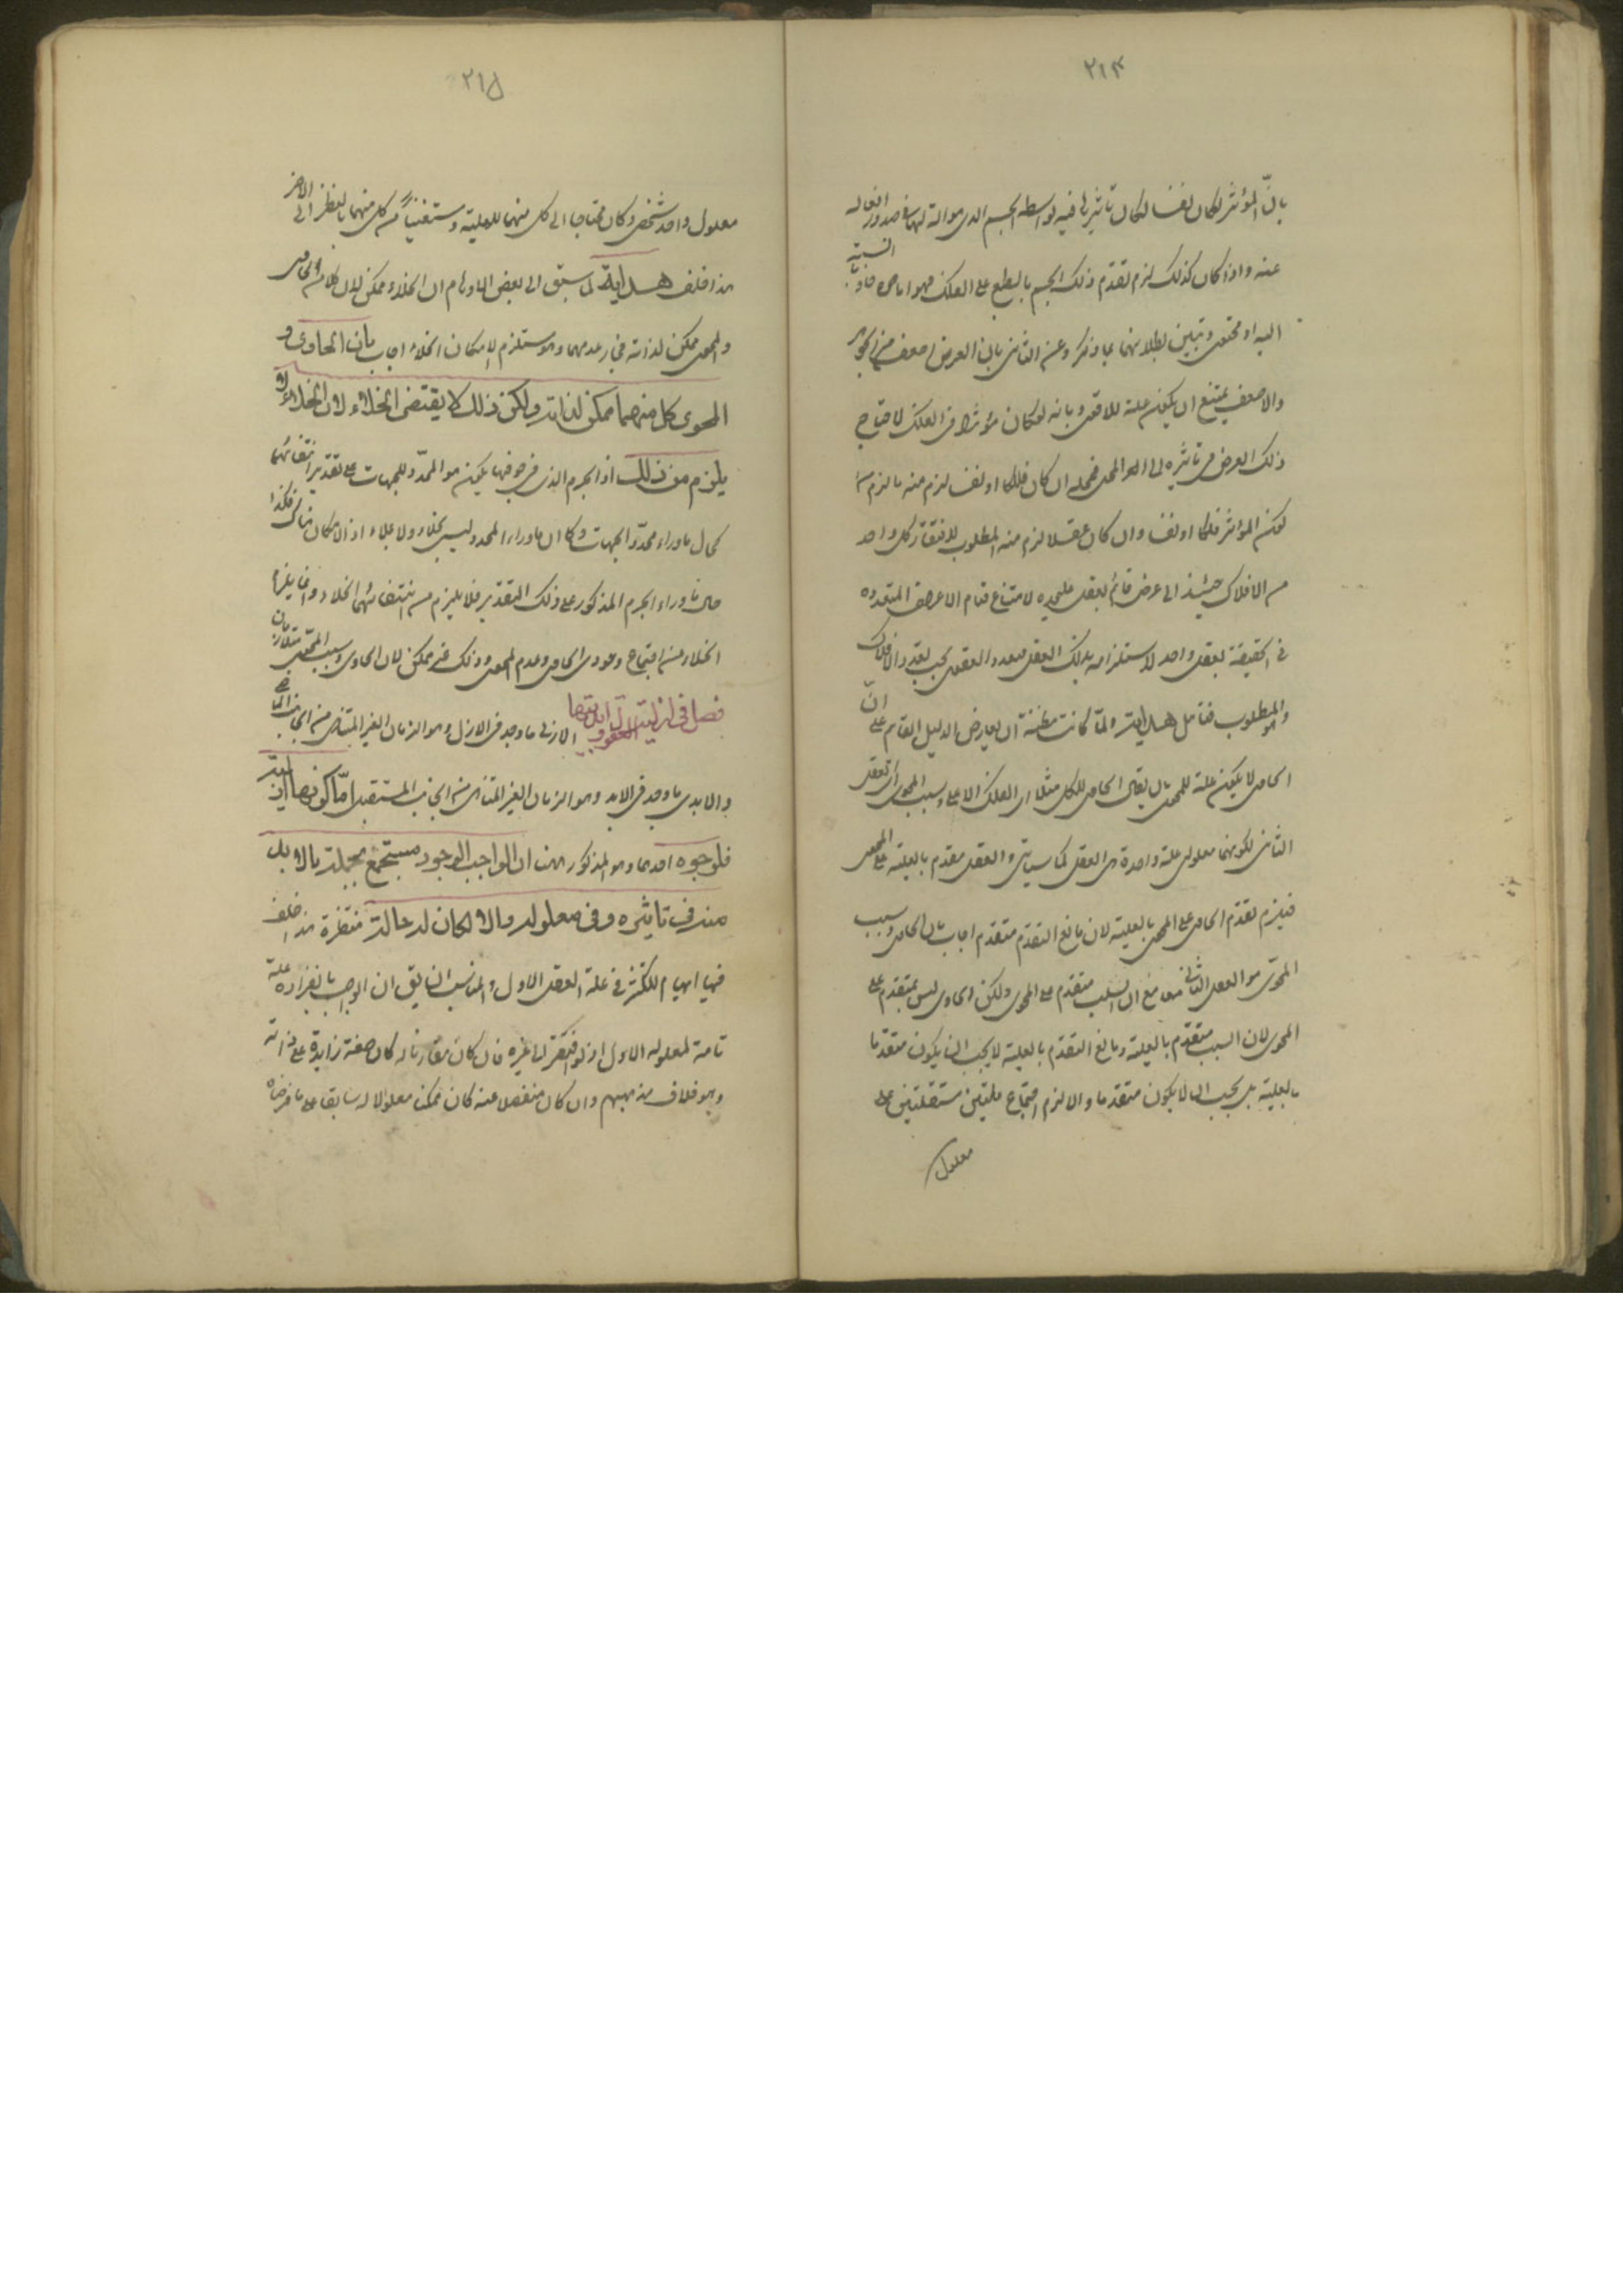 ٢١٤
بانّ المؤثر لو كان نفسا لكان تاثيرها فيه بواسطة الجسم الذى هو الة لها فى صدور افعاله
عنه واذا كان كذلك لزم تقدّم ذلك الجسم بالطبع على الفلك فهو اما حاو بالنسبة
اليه او محوى وتبين بطلانهما بما ذكر وعن الثانى بان العرض اضعف من الجوهر
والاضعف يمتنع ان يكون علة للاقوى وبانه لو كان مؤثرا فى الفلك لاحتاج
ذلك العرض فى تاثيره الى المحل فمحله ان كان فلكا او نفسا لزم منه ما لزم من
كون المؤثر فلكا او نفسا وان كان عقلا لزم منه المطلوب لافتقار كل واحد
من الافلاك حينئذ الى عرض قائم بعقل عليحده لامتناع قيام الاعراض المتعدده
فى الحقيقة بعقل واحد لاستلزامه بذلك العقل فتعدد العقول بحسب تعدد الافلاك
وهو المطلوب فتأمل هداية ولمّا كانت مظنة ان يعارض الدليل القايم على انّ
الحاوى لا يكون علة للمحوى بان يقال الحاوى للكل مثلا اى الفلك الاعلى وسبب المحوى اى العقل
الثانى لكونهما معلولى علة واحدة هى العقل كما سياتى والعقل مقدم بالعلية على المحوى
فيلزم تقدّم الحاوى على المحوى بالعلية لان ما مع المتقدم متقدم اجاب بان الحاوى وسبب
المحوىّ هو العقل الثانى معا مع ان السبب متقدم على المحوى ولكن الحاوى ليس بمتقدم على
المحوى لان السبب متقدّم بالعلية وما مع المتقدّم بالعلية لا يجب ان يكون متقدما
بالعلية بل يجب ان لا يكون متقدما والا لزم اجتماع علتين مستقلتين على
معلول
٢١٥
معلول واحد شخصى وكان محتاجا الى كل منهما للعلية ومستغنياً عن كل منهما بالنظر الى الاخر
هذا خلف هداية لما سبق الى بعض الاوهام ان الخلاء ممكن لان كلا من الحاوى
والمحوى ممكن لذاته فجاز عدمهما وهو مستلزم لامكان الخلاء اجاب بان الحاوى و
المحوى كل منهما ممكن لذاته ولكن ذلك لا يقتضى الخلاء لان الخلاء لا
يلزم من ذلك اذ الجرم الذى فى جوفها يكون هو المحدّد للجهات على تقدير انتفائهما
كحال ما وراء محدّد الجهات وكما ان ما وراء المحدد ليس بخلاء ولا ملاء اذ الامكان هناك فكذا
حال ما وراء الجرم المذكور على ذلك التقدير فلا يلزم من انتفائهما الخلاء وانما يلزم
الخلاء من اجتماع وجود الحاوى وعدم المحوى وذلك غير ممكن لان الحاوى وسبب المحوى متقارنان
فصل فى ازلية العقول وابديتها الازلى ما وجد فى الازل وهو الزمان الغير المتناهى من الجانب الماضى
والابدى ما وجد فى الابد وهو الزمان الغير المتناهى من الجانب المستقبل امّا كونها ازلية
فلوجوه احدها وهو المذكور ههنا ان الواجب الوجود مستجمع بجملة ما لا بد
منه فى تاثيره وفى معلوله والا لكان له حالة منتظرة هذا خلف
فهنا ايهام للتكثر فى علة العقل الاول والمناسب اللايق ان الواجب بانفراده علة
تامة لمعلوله الاول اذ لو افتقر الى غيره فان كان مقارنا له كان صفة زايدة على ذاته
وهو خلاف مذهبهم وان كان منفصلا عنه كان ممكنا معلولا له سابقا على ما فرضناه